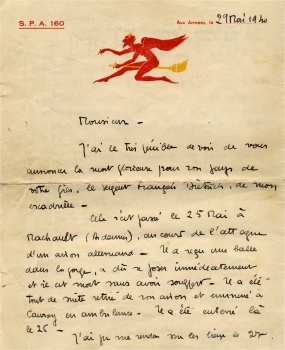 S. P. A. 160
Aux Armées, le 29 Mai 1940
Monsieur -
J'ai le très pénible devoir de vous
annoncer la mort glorieuse pour son pays de
votre fils, le sergent François Dietrich, de mon
escadrille -
Cela s'est passé le 25 Mai à
Machault (Ardennes), au cours de l'attaque
d'un avion allemand - Il a reçu une balle
dans la gorge, a dû se poser immédiatement
et est mort sans avoir souffert - Il a été
tout de suite retiré de son avion et emmené à
en ambulance - Il a été enterré là
le 26 -
J'ai pu me rendre sur les lieux le 27